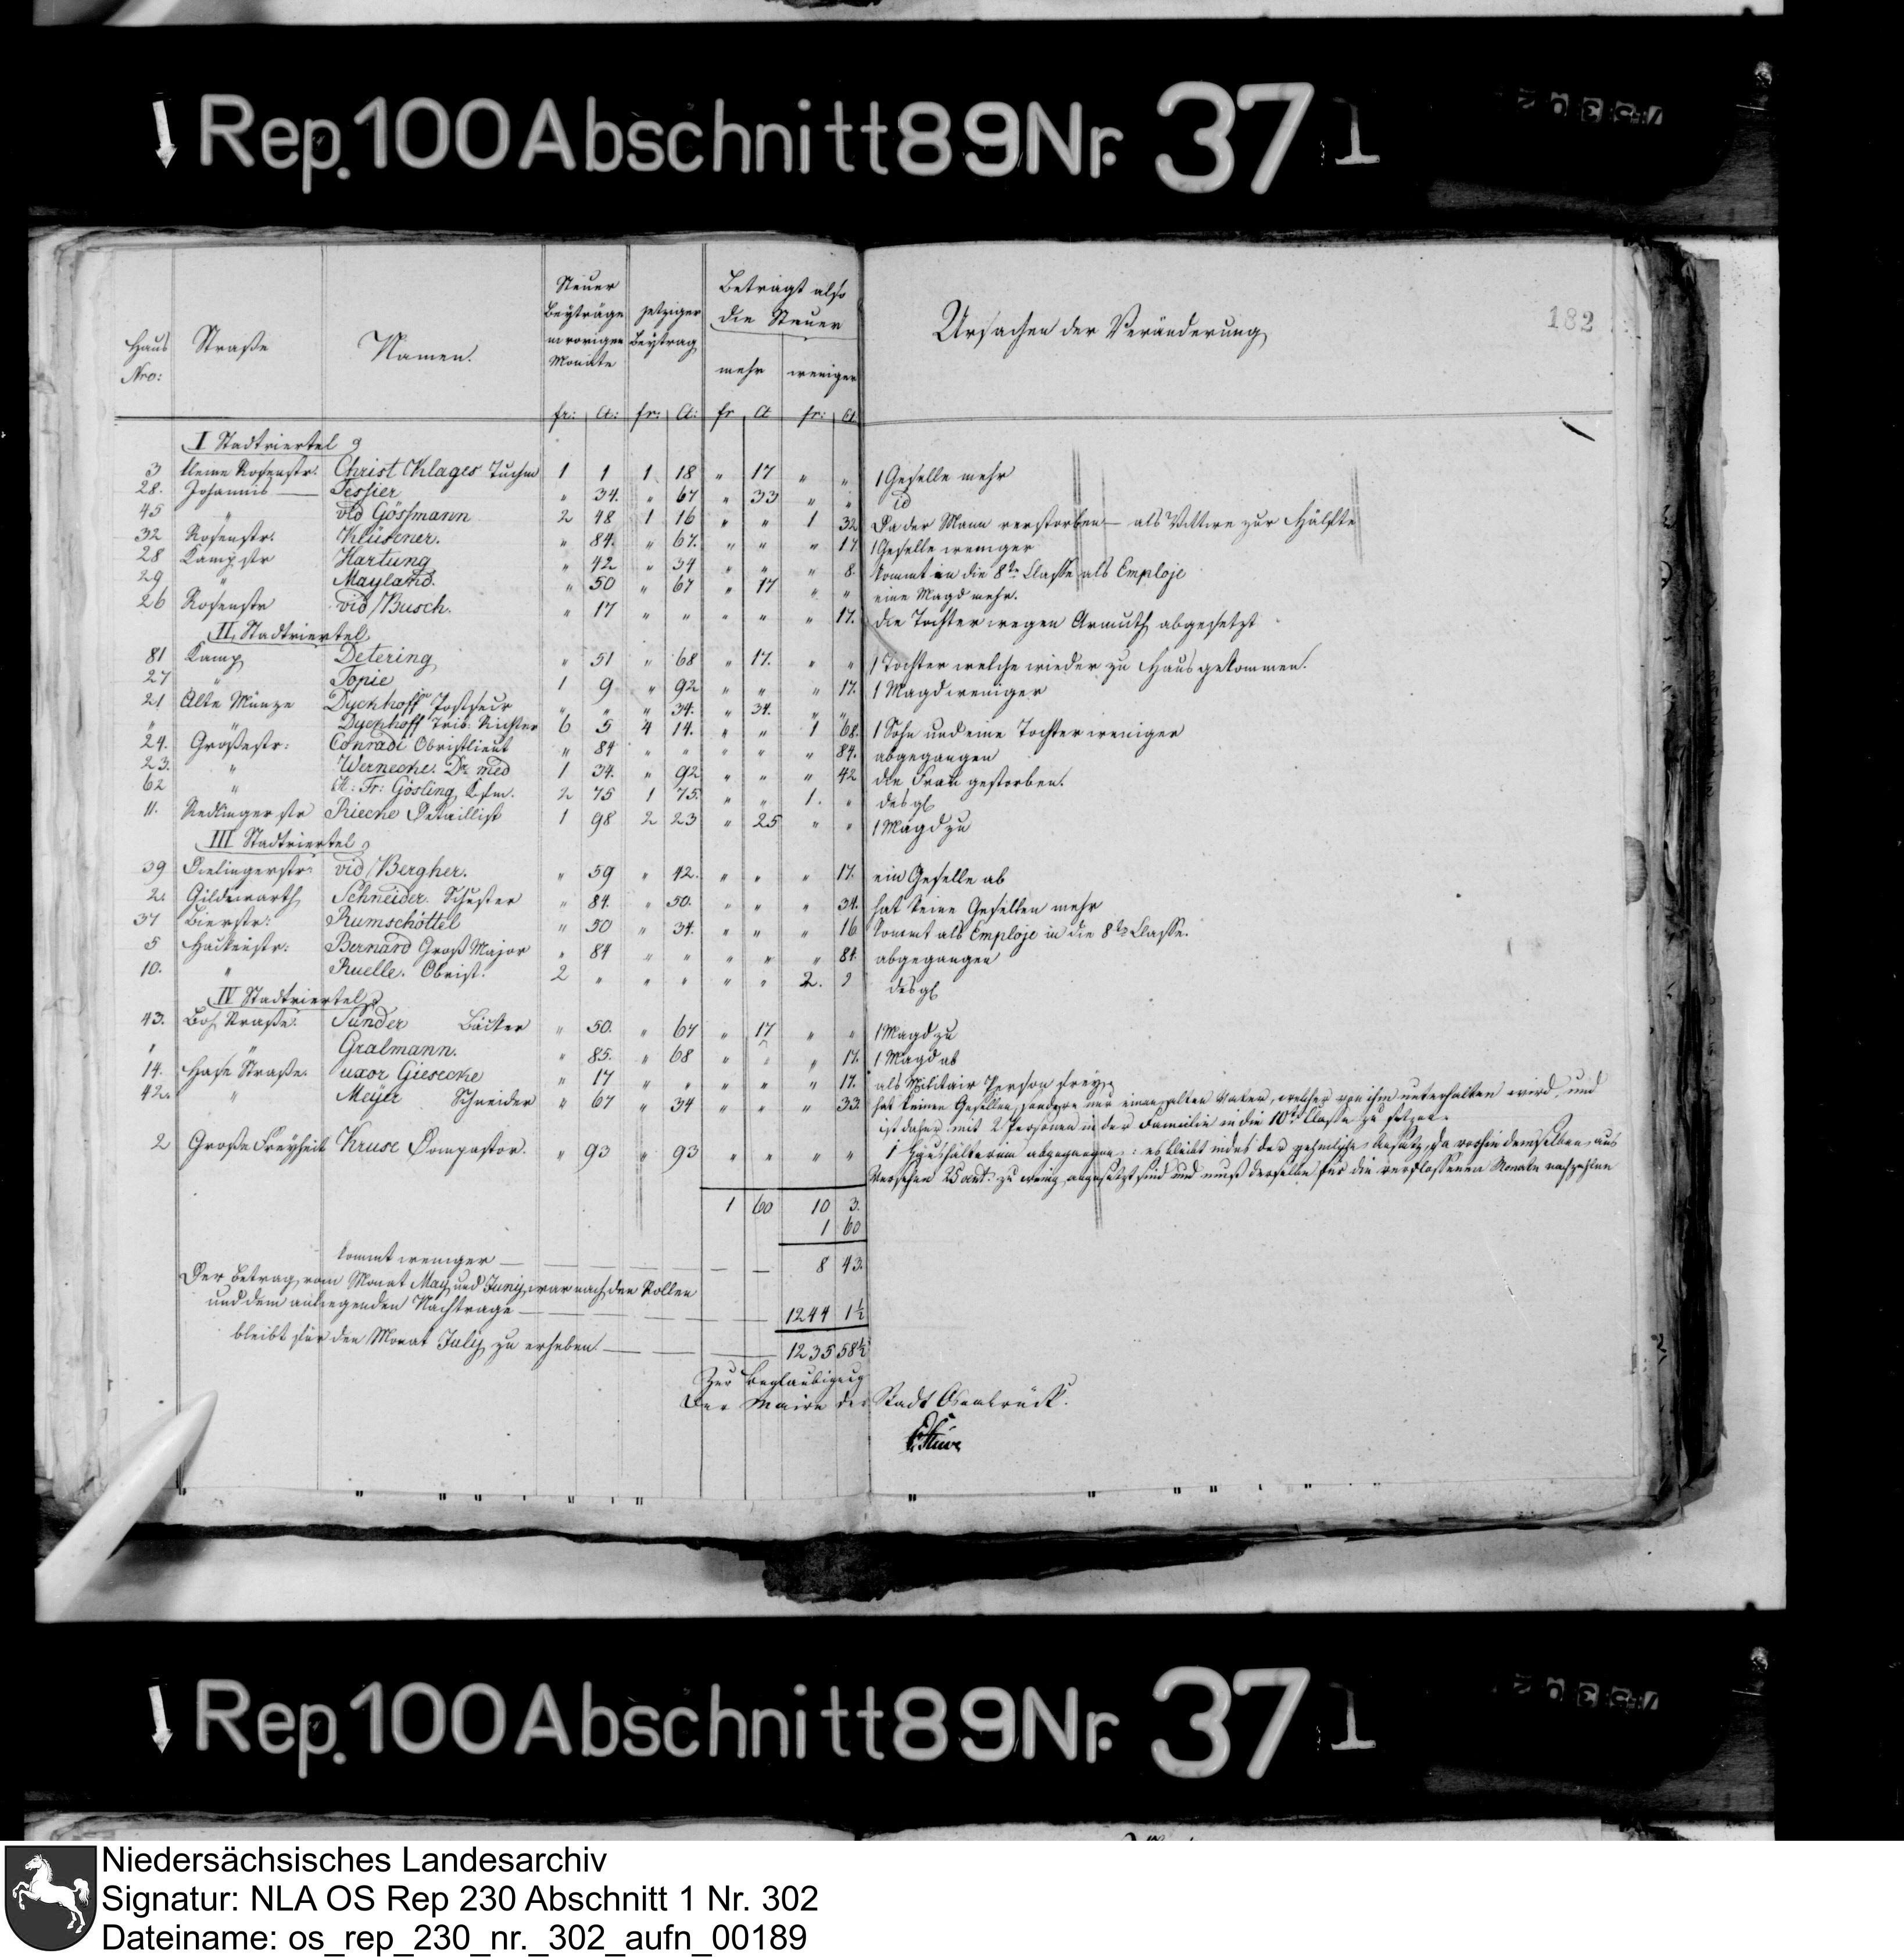 Rep.100Abschnitt89Nr. 37 1
182
Haus Nro:
Straße
Namen.
Steuer Beyträge im vorigen Monate
jetziger Beytrag
Beträgt also die Steuer
mehr
weniger
Ursachen der Veränderung
fr: Ct: fr: Ct: fr Ct fr: Ct
I Stadtviertel
3 kleine Rosenstr. Christ Klages Tuchm 1 1 1 18 " 17 " " 1 Geselle mehr
28. Johannis — Tessier " 34. " 67 " 33 " " id
45 " vid Gössmann 2 48 1 16 " " 1 32 Da der Mann verstorben — als Wittwe zur Hälfte
32 Rosenstr. Klüsener. " 84. " 67. " " " 17 1 Geselle weniger
28 Kamp str Hartung " 42 " 34 " " " 8. kommt in die 8te Classe als Emploje
29 " Mayland. " 50 " 67 " 17 " " eine Magd mehr.
26 Rosenstr vid Busch. " 17 " " " " " 17. die Tochter wegen Armuth abgesetzt
II Stadtviertel
81 Kamp Detering " 51 " 68 " 17. " " 1 Tochter welche wieder zu Haus gekommen.
27 " Topie 1 9 " 92 " " " 17. 1 Magd weniger
21 Alte Münze Dyckhoff Postseur " " " 34. " 34. " "
" " Dyckhoff Trib. Richter 6 5 4 14. " " 1 68. 1 Sohn und eine Tochter weniger
24. Großestr: Conradi Obristlieut " 84 " " " " " 84. abgegangen
23. " Wernecke. Dr. med 1 34. " 92 " " " 42 die Frau gestorben.
62 " Fr: Gösling Kfm. 2 75 1 75. " " 1. " desgl
11. Redlinger str Riecke Detaillist 1 98 2 23 " 25 " " 1 Magd zu
III Stadtviertel
39 Dielingerstr: vid Bergher. " 59 " 42. " " " 17. ein Geselle ab
2. Gildewarth Schneider. Schuster " 84. " 50. " " " 34. hat keine Gesellen mehr
37 Bierstr: Rumschöttel " 50 " 34. " " " 16 kommt als Emploje in die 8te Classe.
5 Hackenstr: Bernard Groß Major " 84 " " " " " 84. abgegangen
10. " Ruelle. Obrist. 2 " " " " " 2. " desgl
IV Stadtviertel
43. Straße. Sünder Bäcker " 50. " 67 " 17 " " 1 Magd zu
" " Gralmann. " 85. " 68 " " " 17. 1 Magd ab
14. Hase Straße. uxor Giesecke " 17 " " " " " 17. als Militair Person frey
42. " Meyer Schneider " 67 " 34 " " " 33. hat keinen Gesellen, sondern nur einen alten Vater, welcher von ihm unterhalten wird, und
ist daher mit 2 Personen in der Familie in die 10te Classe zu setzen.
2 Große Freyheit Kruse Dompastor. " 93 " 93 " " " " 1 Haushälterin abgegangen: es bleibt indes der Ansatz, da vorhin demselben aus
Versehen 25 cent: zu wenig angesetzt sind und muß derselbe für die verflossenen Monate nachzahlen
1 60 10 3.
1 60
kommt weniger — 8 43.
Der Betrag vom Monat May und Juny war nach den Rollen
und dem anliegenden Nachtrage — 1244 1½
bleibt für den Monat July zu erheben — 1235 58½
Zur Beglaubigung
Der Maire der Stadt Osnabrück.
Stüve
Rep.100Abschnitt89Nr. 37 1
Niedersächsisches Landesarchiv
Signatur: NLA OS Rep 230 Abschnitt 1 Nr. 302
Dateiname: os_rep_230_nr._302_aufn_00189